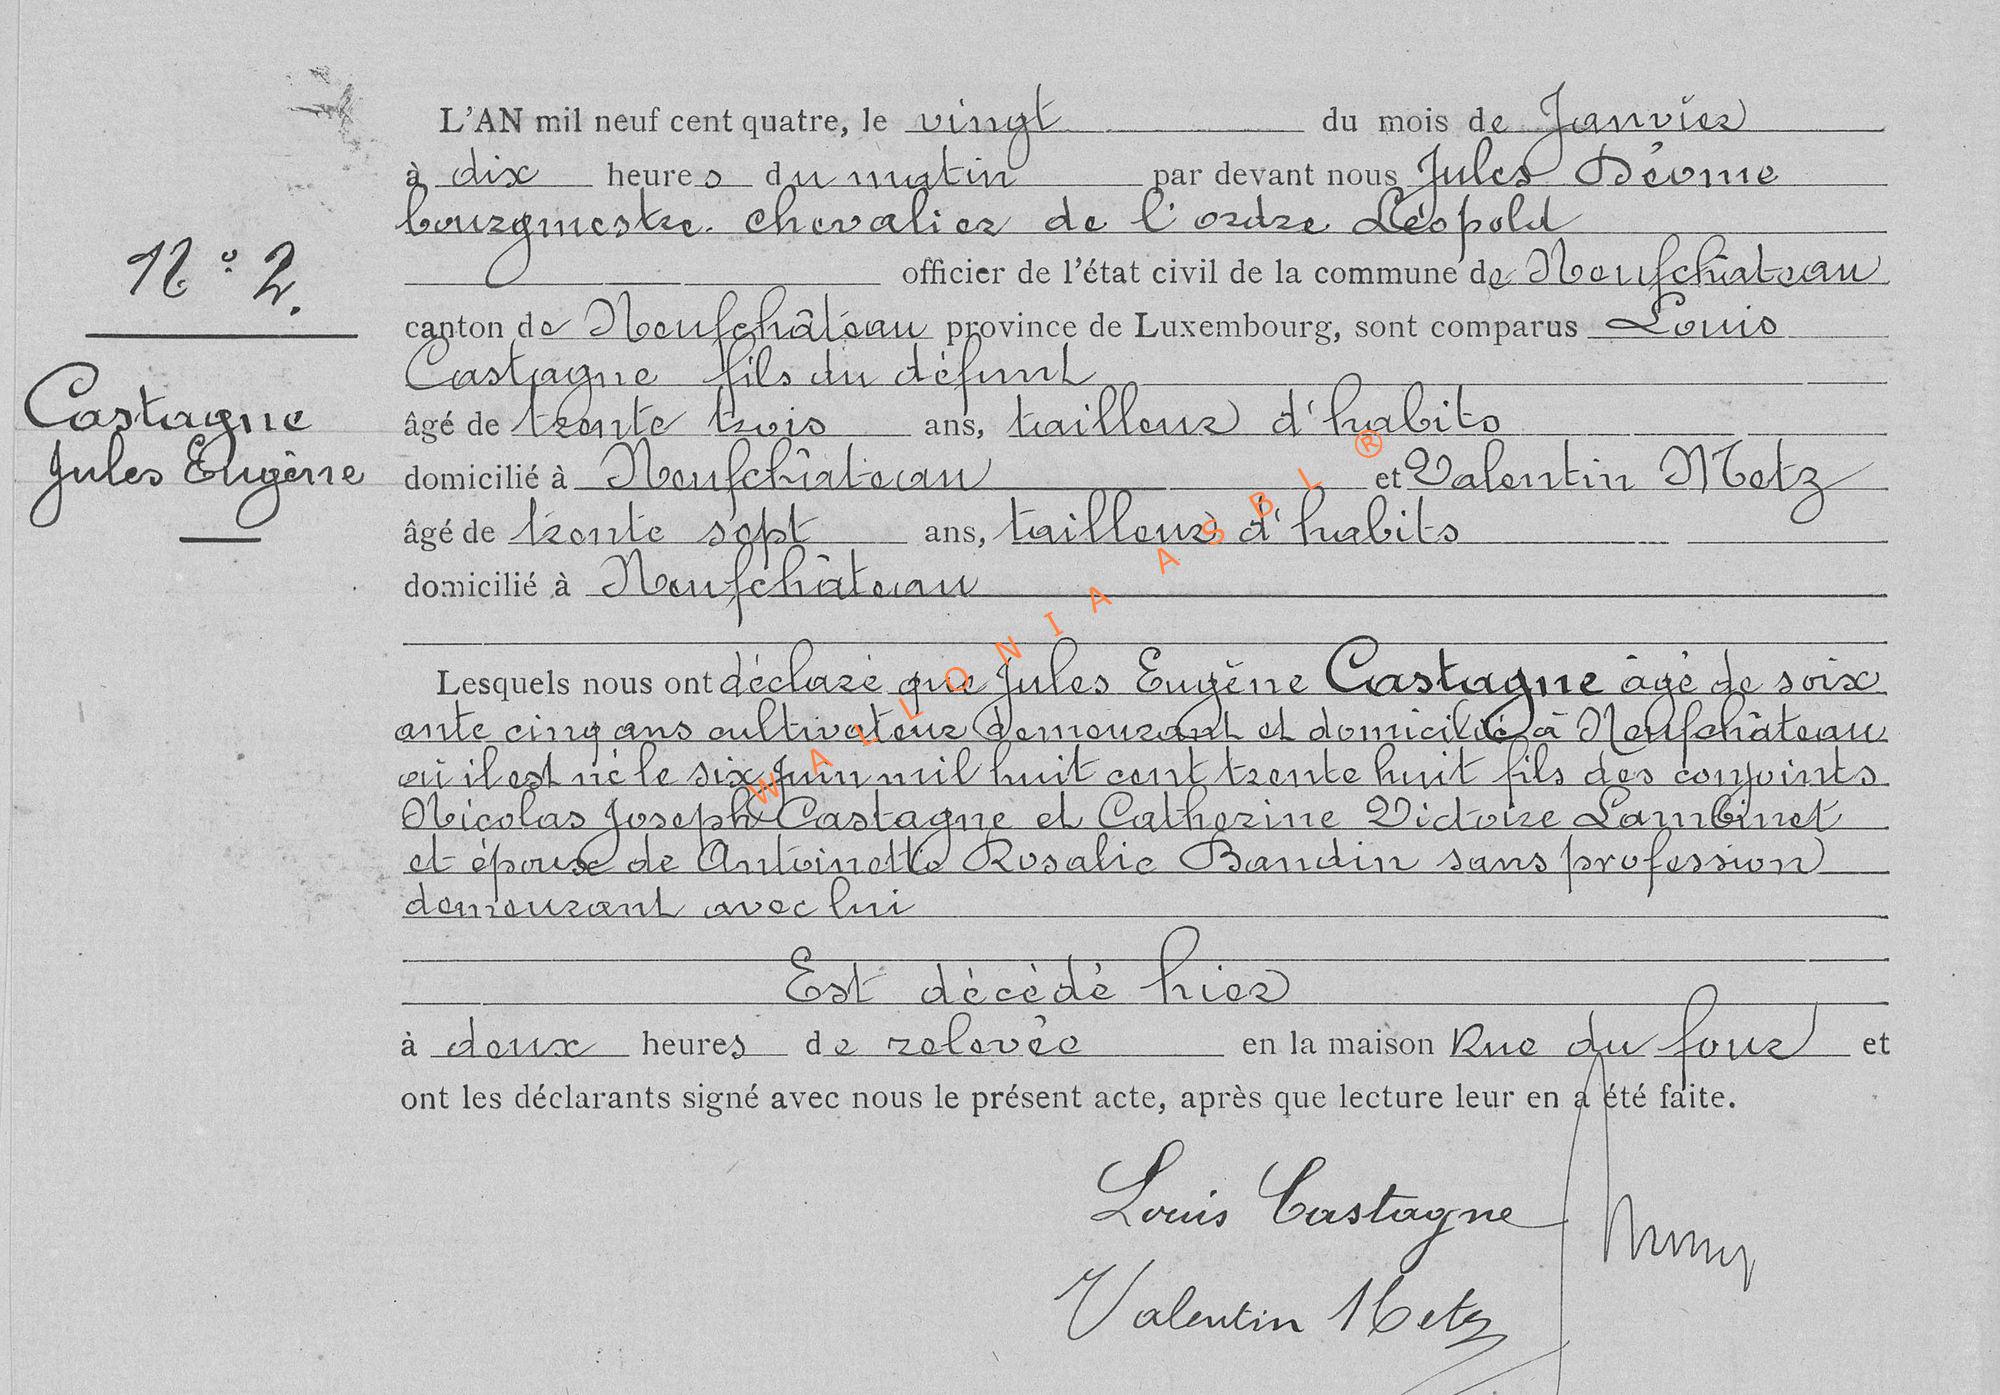 L'AN mil neuf cent quatre, le vingt du mois de Janvier
à dix heures du matin par devant nous Jules Déome
bourgmestre. chevalier de l'ordre Léopold
N° 2.
officier de l'état civil de la commune de Neufchâteau
canton de Neufchâteau province de Luxembourg, sont comparus Louis
Castagne fils du défunt
Castagne
Jules Eugène
âgé de trente trois ans, tailleur d'habits
domicilié à Neufchâteau et Valentin Metz
âgé de trente sept ans, tailleur d'habits
domicilié à Neufchâteau
WALLONIA ASBL ®
Lesquels nous ont déclaré que Jules Eugène Castagne âgé de soix
ante cinq ans cultivateur demeurant et domicilié à Neufchâteau
où il est né le six Juin mil huit cent trente huit fils des conjoints
Nicolas Joseph Castagne et Catherine Victoire Lambinet
et époux de Antoinette Rosalie Baudin sans profession
demeurant avec lui
Est décédé hier
à deux heures de relevée en la maison Rue du four et
ont les déclarants signé avec nous le présent acte, après que lecture leur en a été faite.
Louis Castagne
Valentin Metz